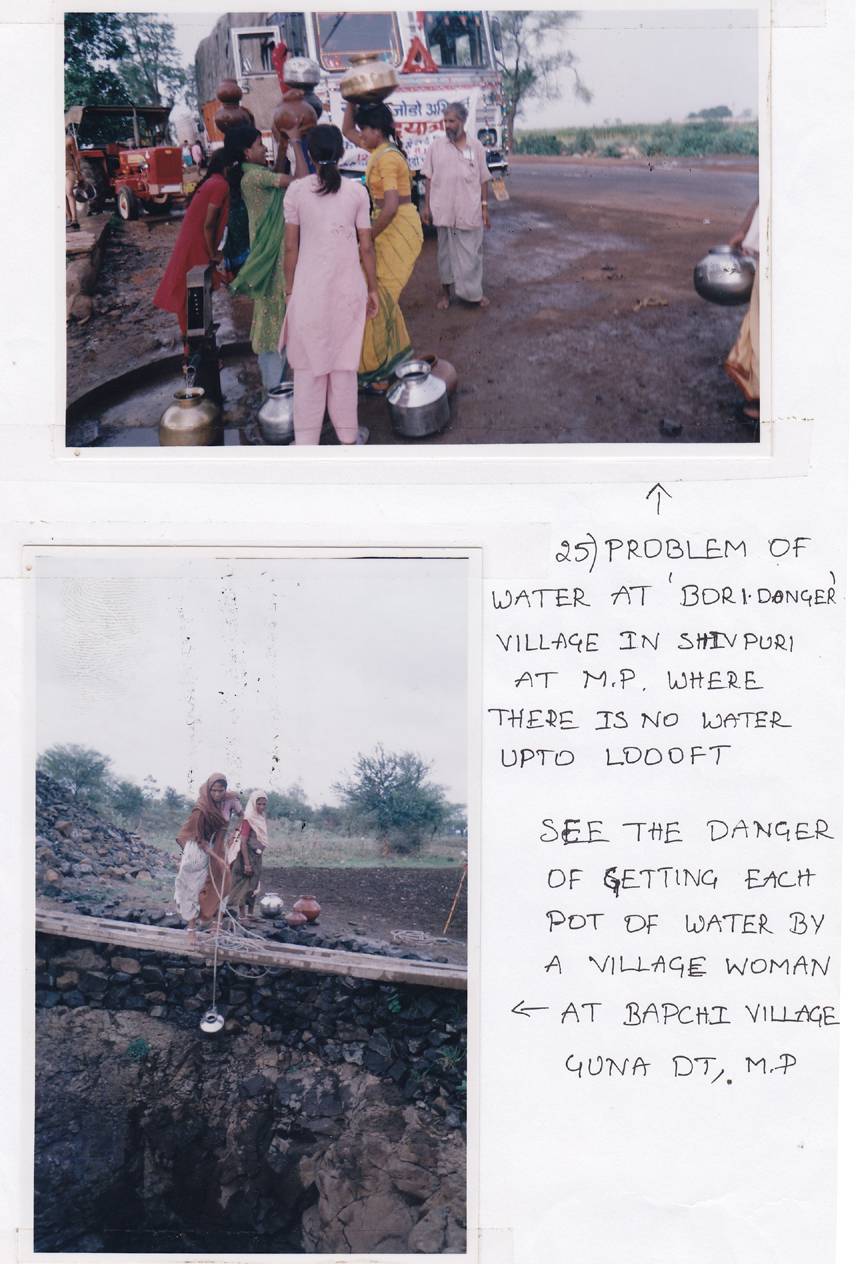 जोडो अभि
25) PROBLEM OF
WATER AT 'BORI.DONGER'
VILLAGE IN SHIVPURI
AT M.P. WHERE
THERE IS NO WATER
UPTO 1000FT
SEE THE DANGER
OF GETTING EACH
POT OF WATER BY
A VILLAGE WOMAN
← AT BAPCHI VILLAGE
GUNA DT,. M.P